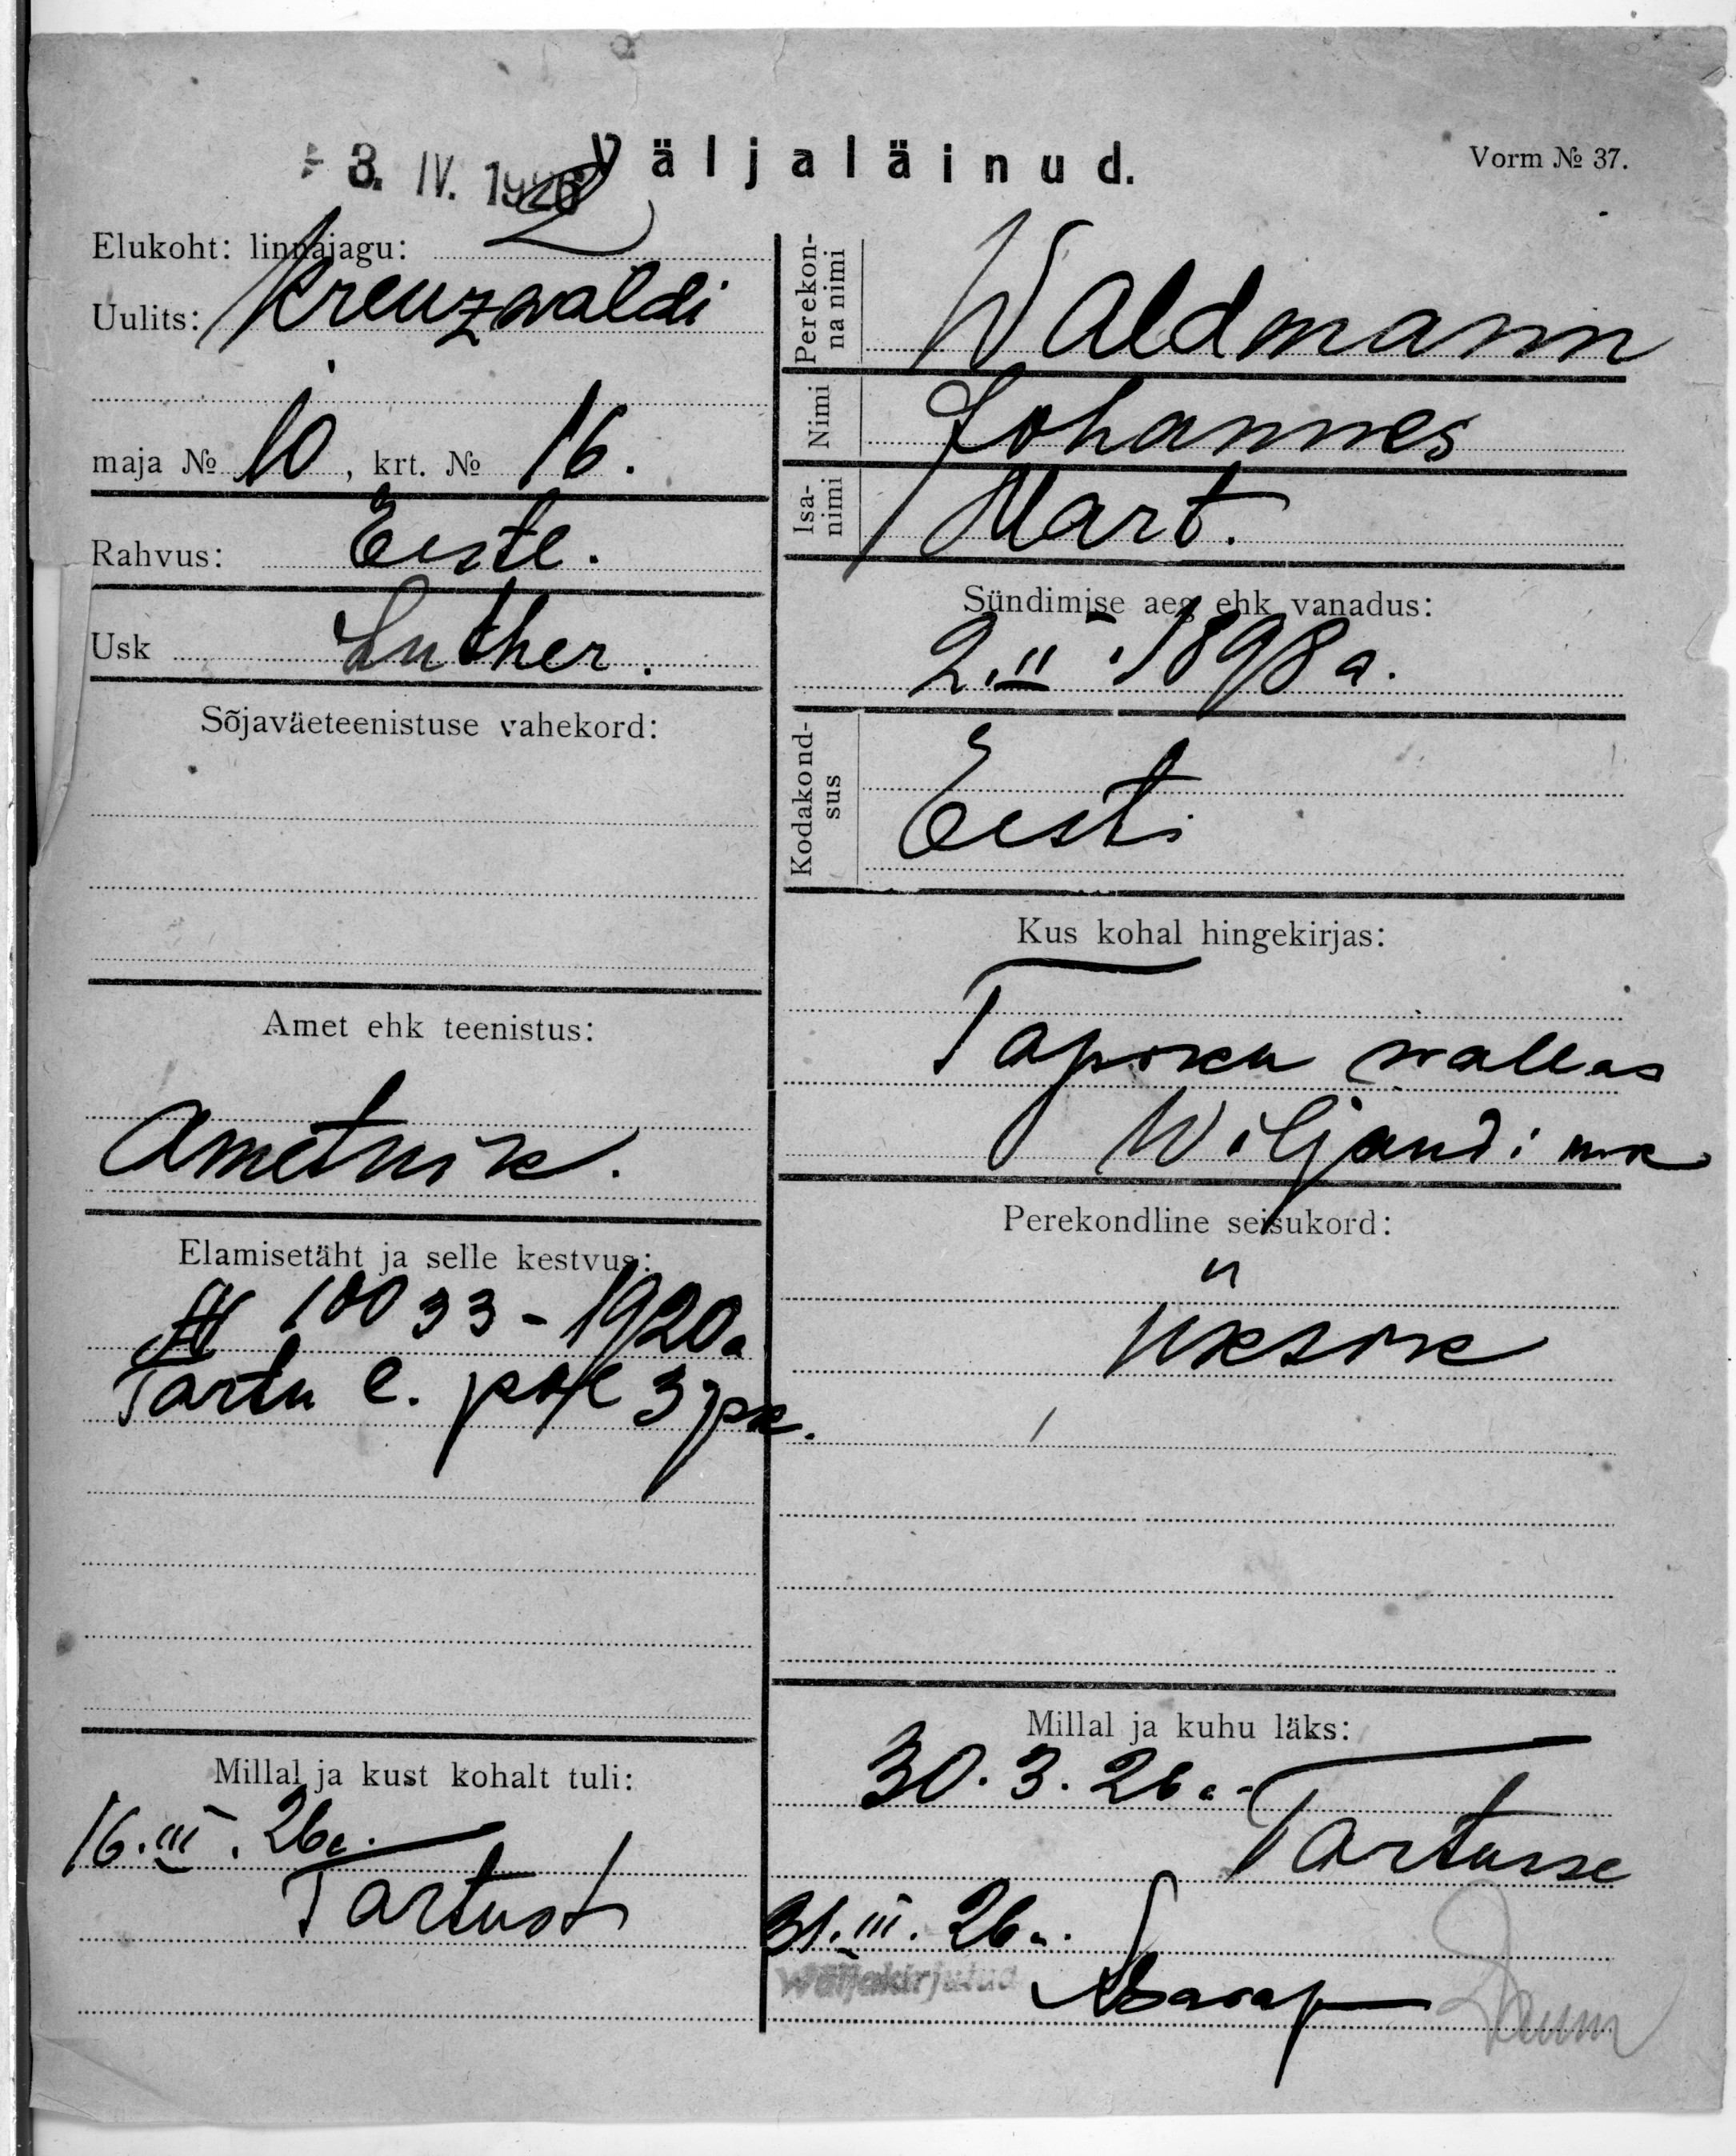 - 3. IV. 1926
Väljaläinud.
Vorm № 37.
Elukoht: linnajagu: 2
Uulits: Kreuzwaldi
maja № 10, krt. № 16.
Rahvus: Eestl.
Usk Luther.
Sõjaväeteenistuse vahekord:
Amet ehk teenistus:
Ametnik.
Elamisetäht ja selle kestvus:
18033 - 1920 a
Tartu l. pol 3 jsk.
Millal ja kust kohalt tuli:
16. III. 26 a.
Tartust
Perekon-
na nimi
Waldmann
Nimi Johannes
Isa-
nimi
Mart.
Sündimise aeg ehk vanadus:
2. II. 1898 a.
Kodakond-
sus
Eesti
Kus kohal hingekirjas:
Tapiku wallas
Wiljandi mk
Perekondline seisukord:
üksik
Millal ja kuhu läks:
30. 3. 26 a.
Tartusse
31. III. 26 a.
Wäljakirjutud